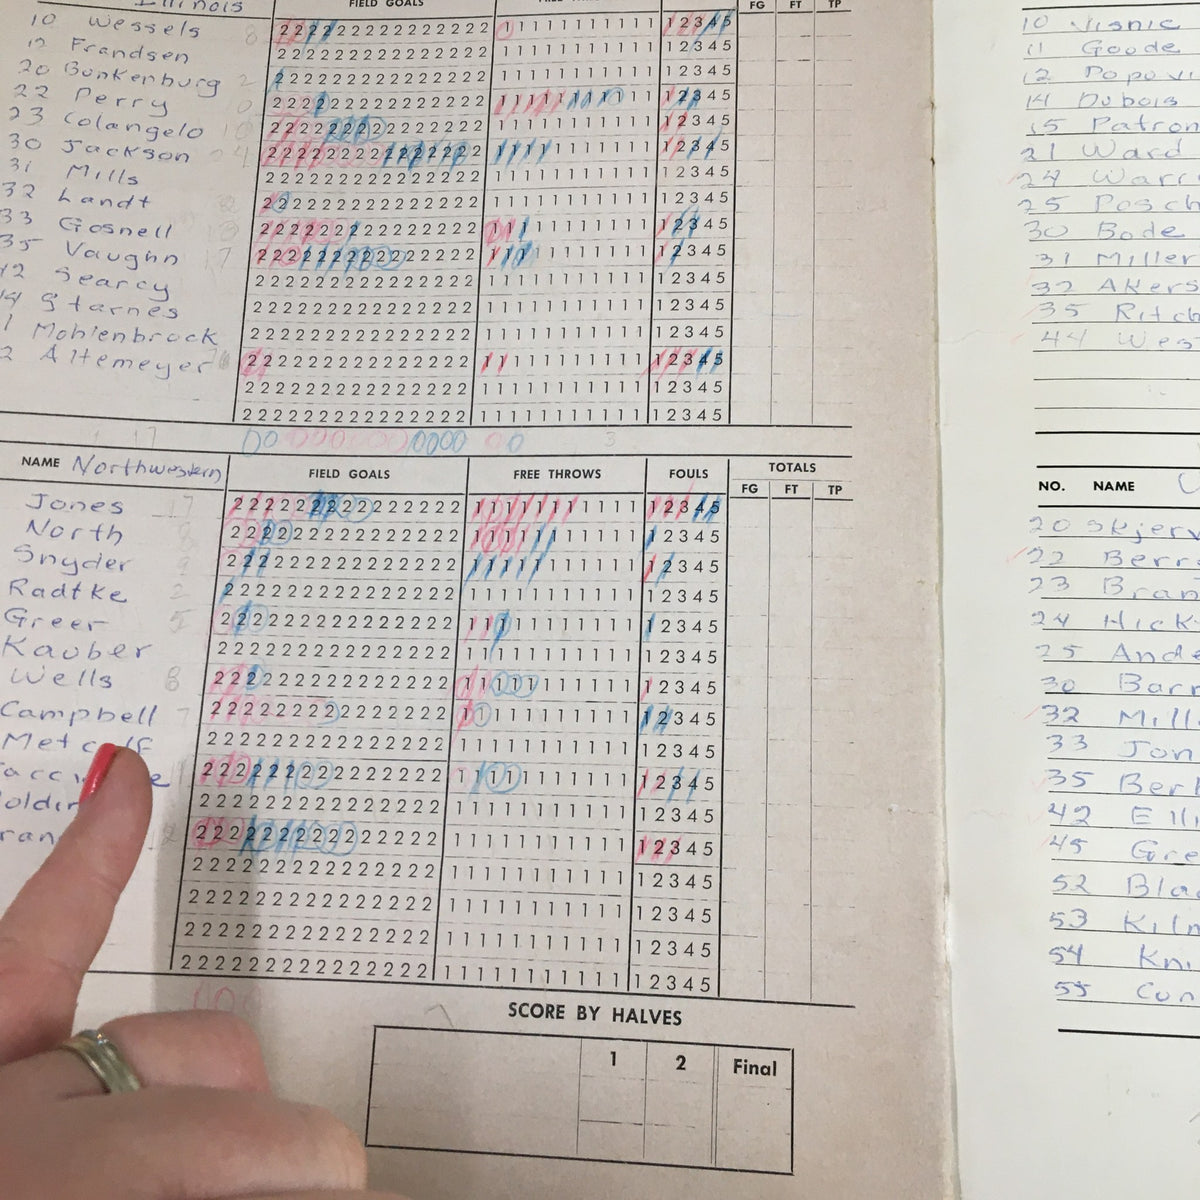 Illinois FIELD GOALS FG FT TP
10 Wessels 8 2222222222222222 1111111111 12345
12 Frandsen 2222222222222222 1111111111 12345
20 Bonkenburg 2 2222222222222222 1111111111 12345
22 Perry 10 2222222222222222 1111111111 12345
23 Colangelo 10 2222222222222222 1111111111 12345
30 Jackson 24 2222222222222222 1111111111 12345
31 Mills 2222222222222222 1111111111 12345
32 Landt 2222222222222222 1111111111 12345
33 Gosnell 13 2222222222222222 1111111111 12345
35 Vaughn 17 2222222222222222 1111111111 12345
42 Searcy 2222222222222222 1111111111 12345
Starnes 2222222222222222 1111111111 12345
Mohlenbrock 2222222222222222 1111111111 12345
Altemeyer 2222222222222222 1111111111 12345
2222222222222222 1111111111 12345
2222222222222222 1111111111 12345
NAME Northwestern FIELD GOALS FREE THROWS FOULS TOTALS
FG FT TP
Jones 17 2222222222222222 1111111111 12345
North 8 2222222222222222 1111111111 12345
Snyder 9 2222222222222222 1111111111 12345
Radtke 2 2222222222222222 1111111111 12345
Greer 5 2222222222222222 1111111111 12345
Kauber 2222222222222222 1111111111 12345
Wells 8 2222222222222222 1111111111 12345
Campbell 7 2222222222222222 1111111111 12345
2222222222222222 1111111111 12345
2222222222222222 1111111111 12345
2222222222222222 1111111111 12345
2222222222222222 1111111111 12345
2222222222222222 1111111111 12345
2222222222222222 1111111111 12345
2222222222222222 1111111111 12345
2222222222222222 1111111111 12345
SCORE BY HALVES
1 2 Final
10 Visnic
11 Goode
12 Popovi
14 Dubois
15 Patron
21 Ward
24 Warr
25 Posch
30 Bode
31 Miller
32 Akers
35 Ritch
44 Wes
NO. NAME
20 Skjerv
22 Berr
23 Bran
24 Hick
25 Ande
30 Barr
32 Mill
33 Jon
35 Berk
42 Elli
45 Gre
52 Bla
53 Kiln
54 Kni
55 Con